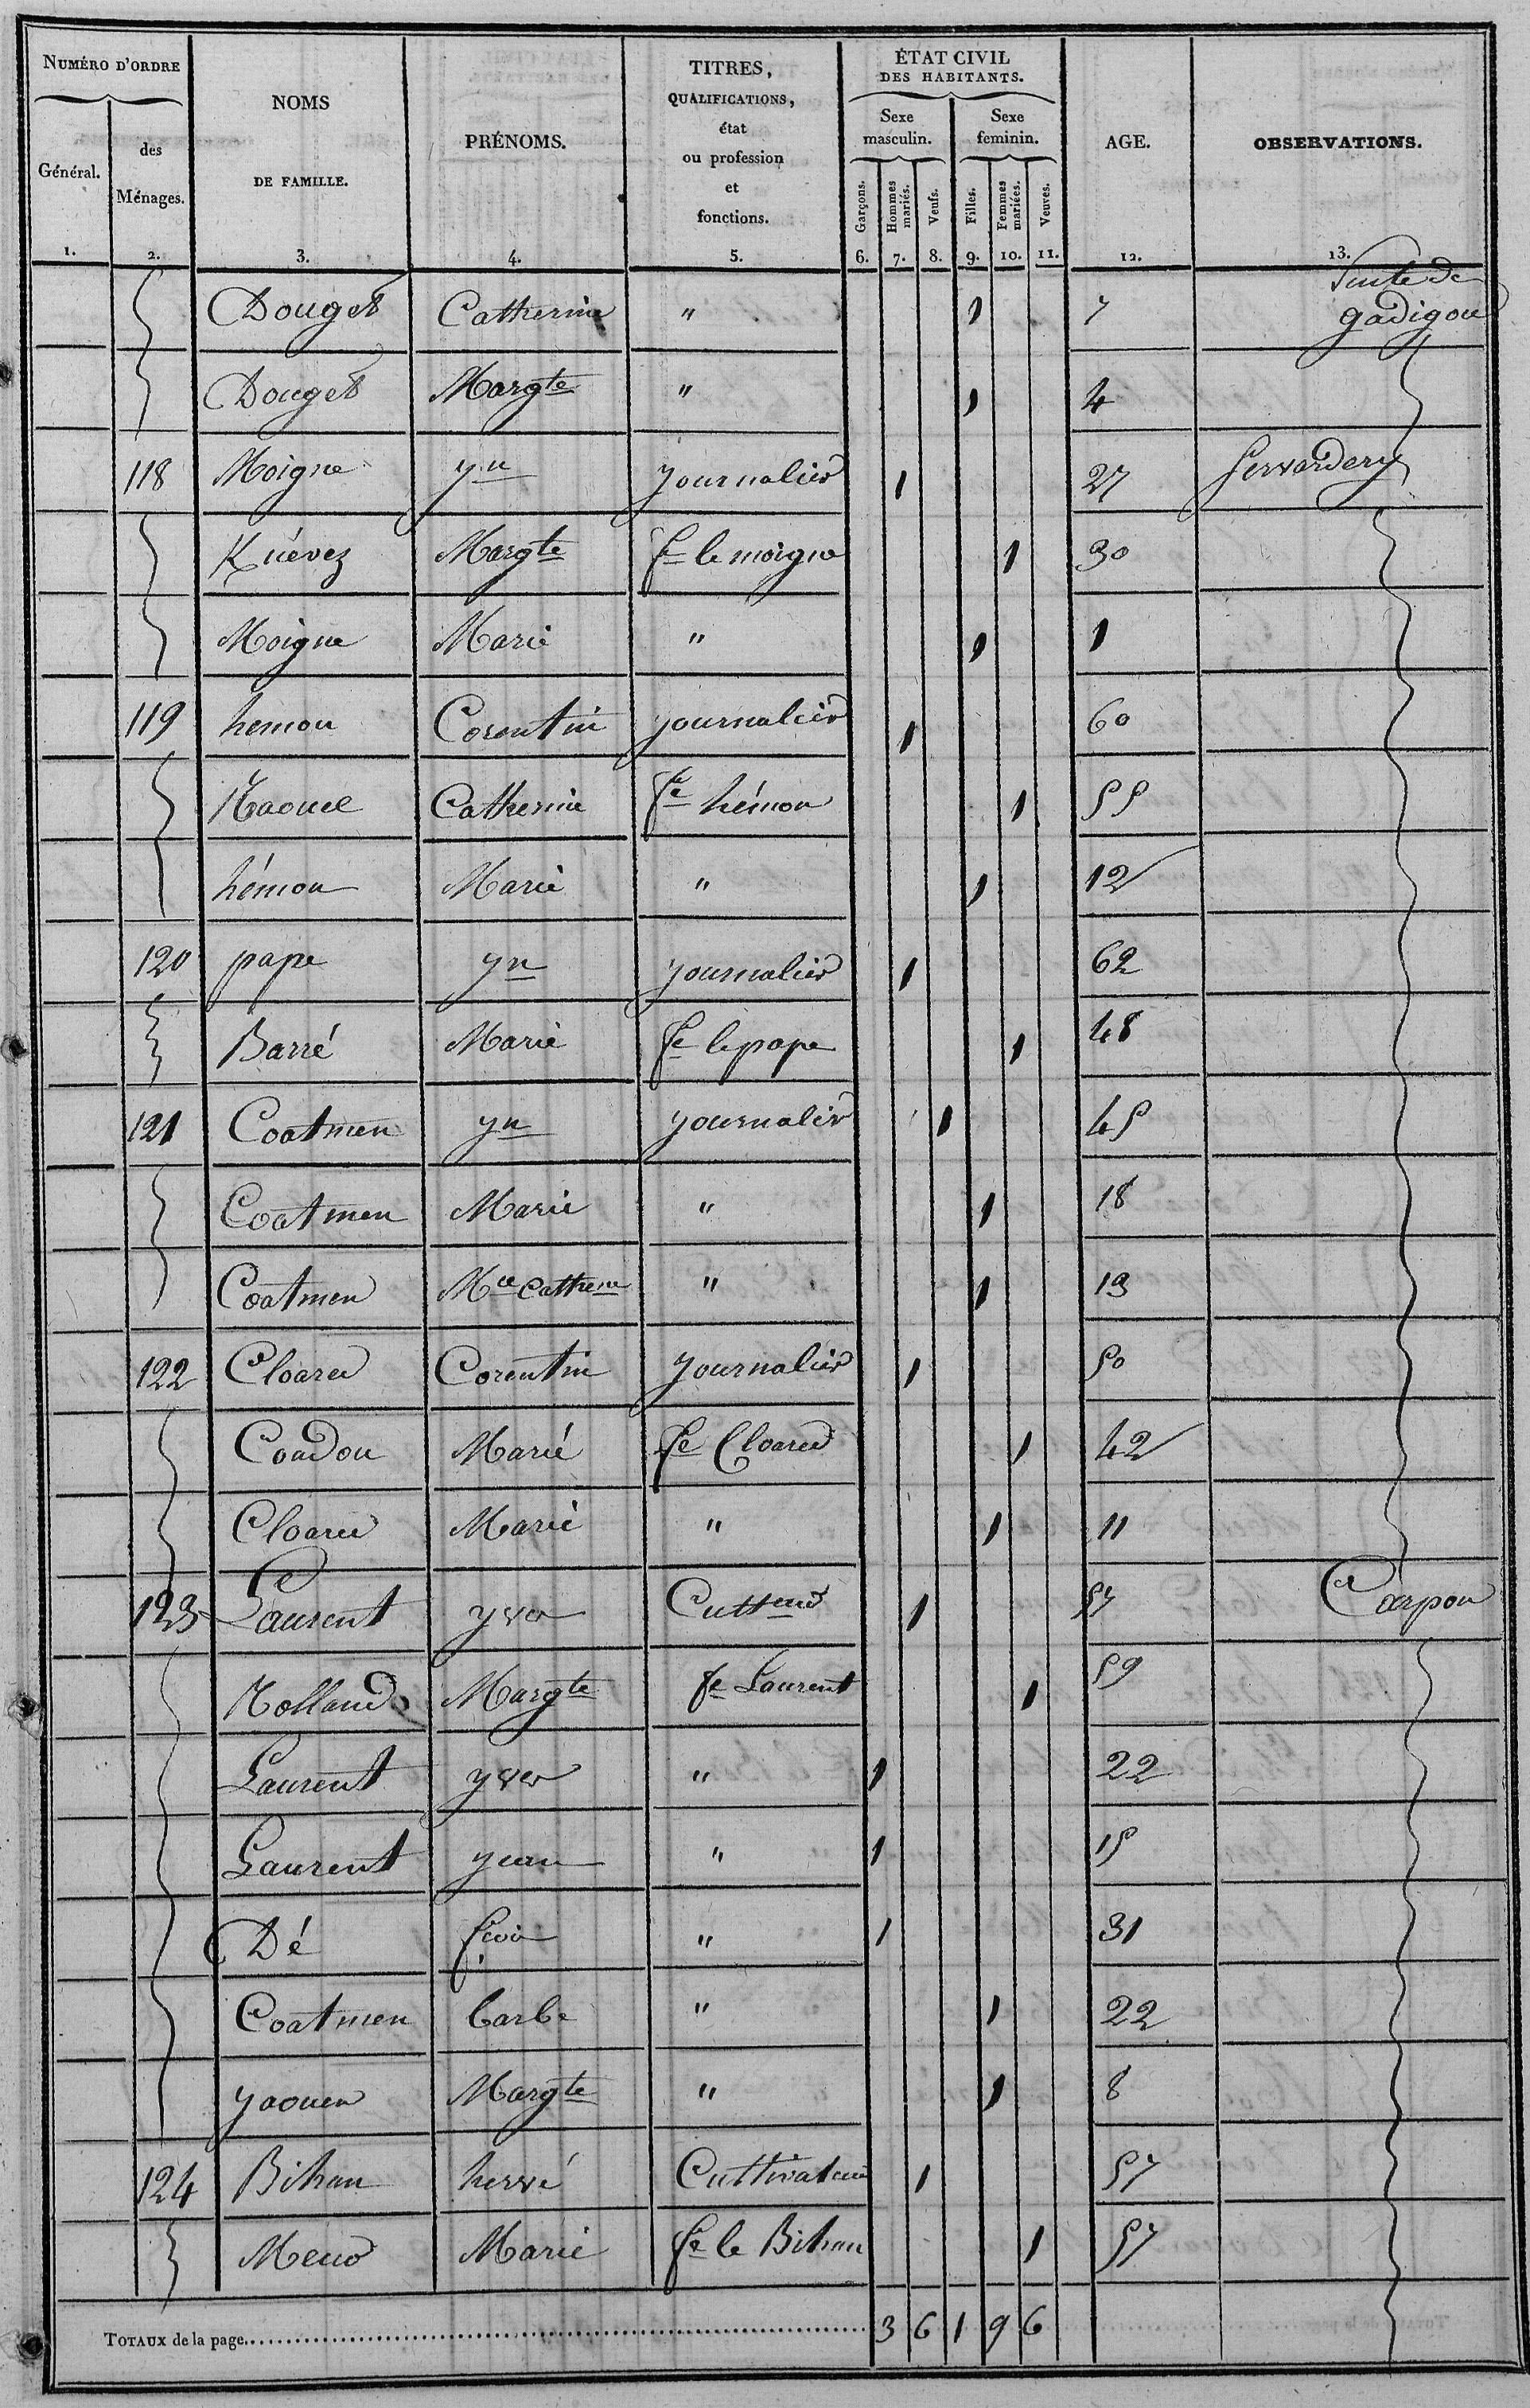 NUMÉRO D'ORDRE
Général.
des Ménages.
NOMS DE FAMILLE.
PRÉNOMS.
TITRES, QUALIFICATIONS, état ou profession et fonctions.
ÉTAT CIVIL DES HABITANTS.
Sexe masculin.
Sexe feminin.
Garçons.
Hommes mariés.
Veufs.
Filles.
Femmes mariées.
Veuves.
AGE.
OBSERVATIONS.
1. 2. 3. 4. 5. 6. 7. 8. 9. 10. 11. 12. 13.
Douget Catherine " 1 7 Suite de gadigou
Douget Margte " 1 4
118 Moigne yn journalier 1 27
Kuévez Margte fe le moigne 1 30
Moigne Marie " 1 1
119 hemon Corentin journalier 1 60
Raouel Catherine fe hémon 1 55
hémon Marie " 1 12
120 pape yn journalier 1 62
Barré Marie fe le pape 1 48
121 Coatmen yn journalier 1 45
Coatmen Marie " 1 18
Coatmen Mie Cathene " 1 13
122 Cloarec Corentin journalier 1 50
Coadou Marie fe Cloarec 1 42
Cloarec Marie " 1 11
123 Laurent yves Culteur 1 57 Carpon
Rolland Margte fe Laurent 1 59
Laurent yves " 1 22
Laurent jean " 1 15
Dé fcois " 1 31
Coatmen barbe " 1 22
yaouen Margte " 1 8
124 Bihan hervé Cultivateur 1 57
Meur Marie fe le Bihan 1 57
TOTAUX de la page 3 6 1 9 6